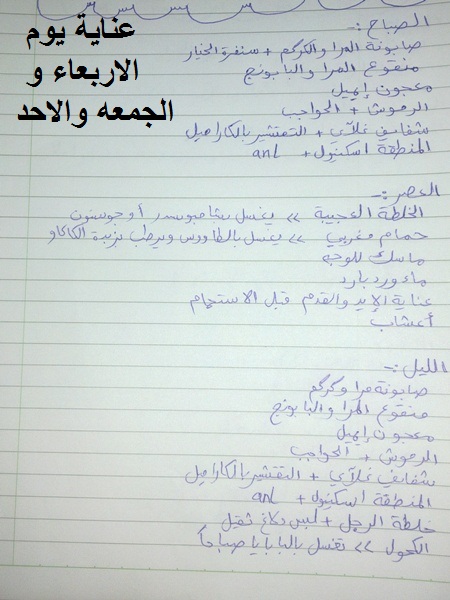 عناية يوم
الاربعاء و
الجمعه والاحد
الصباح :-
صابونة المرا والكركم + سنفرة الخيار
منقوع المرا والبابونج
معجون إهيل
الرموش + الحواجب
شفايف غلآي + التقشير بالكاراميل
المنطقة اسكنيول + anL
العصر :-
الخلطة العجيبة >> يغسل بشامبو سدر أو جونسون
حمام مغربي >> يغسل بالطاووس ويرطب بزبدة الكاكاو
ماسك للوجه
ماء ورد بارد
عناية الإيد والقدم قبل الاستحمام
أعشاب
الليل :-
صابونة مرا وكركم
منقوع المرا والبابونج
معجون إهيل
الرموش + الحواجب
شفايف غلآي + التقشير بالكاراميل
المنطقة اسكنيول + anL
خلطة الرجل + لبس دلاغ ثقيل
الكحول >> تغسل بالبابايا صباحاً